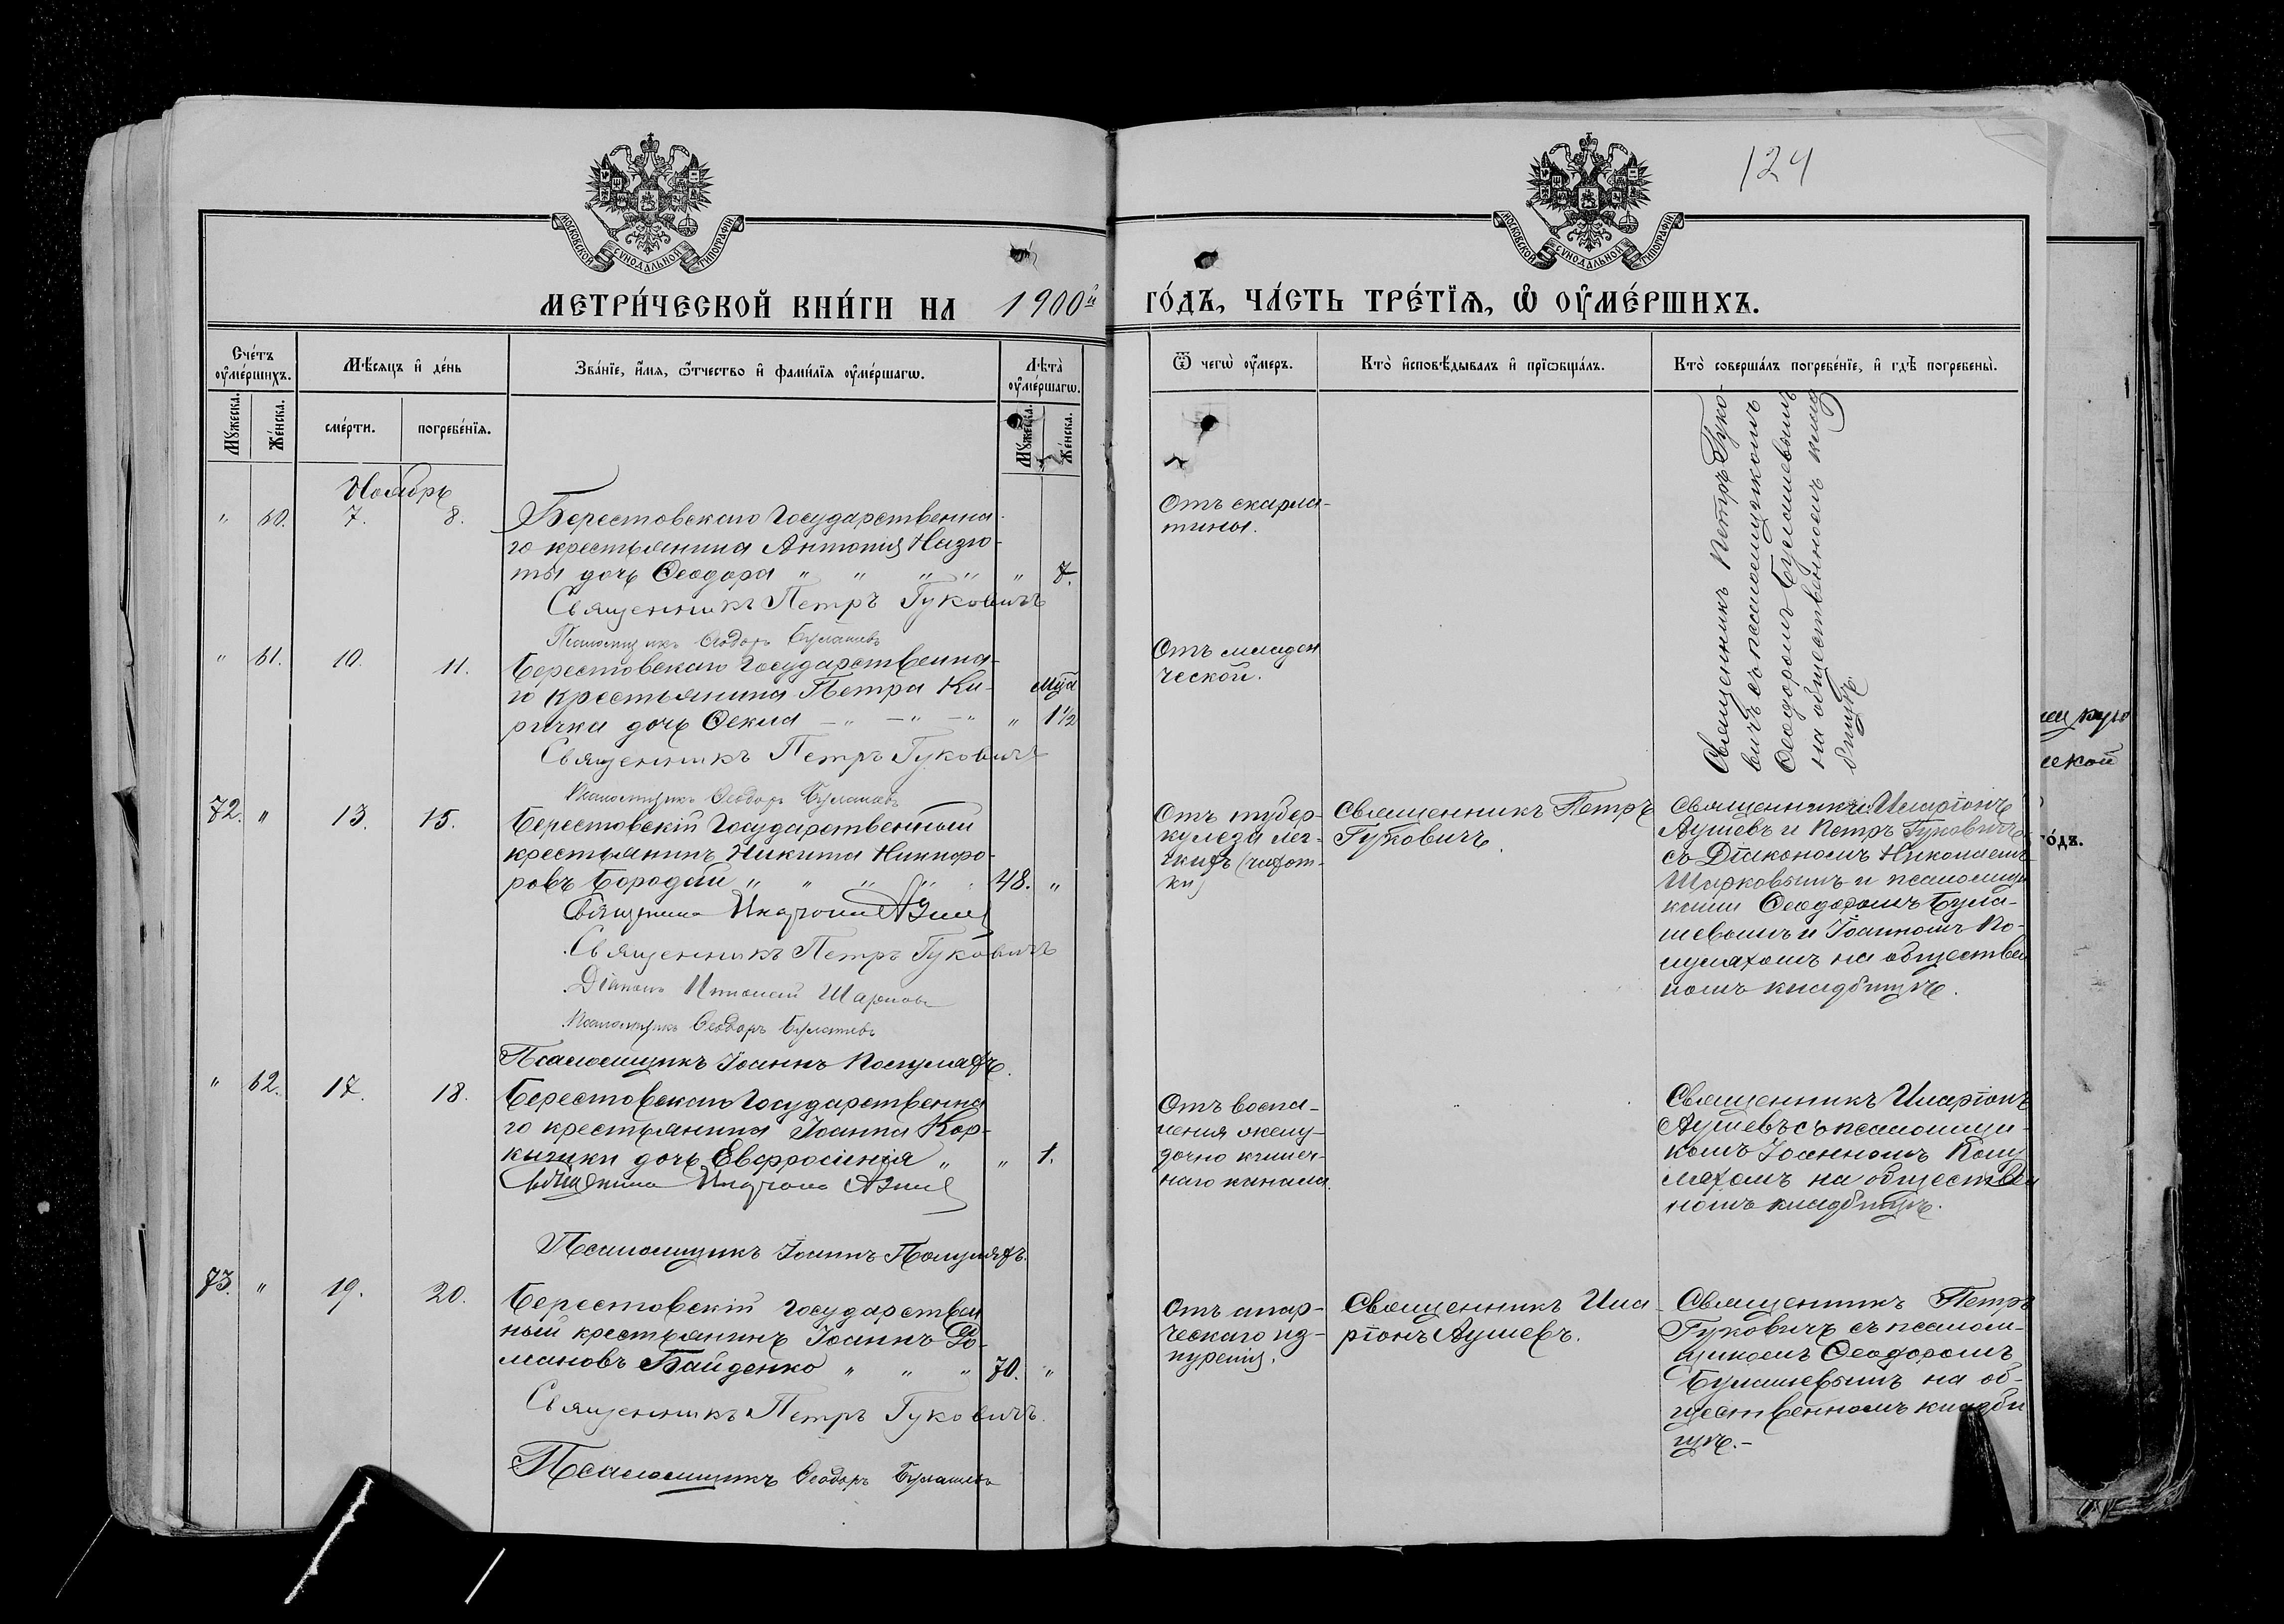 124
МОСКОВСКОЙ СѴНОДАЛЬНОЙ ТИПОГРАФІИ
МОСКОВСКОЙ СѴНОДАЛЬНОЙ ТИПОГРАФІИ
МЕТРИ́ЧЕСКОЙ КНИ́ГИ НА 1900й ГО́ДЪ, ЧА́СТЬ ТРЕ́ТІѦ, Ѡ ОУМЕ́РШИХЪ.
Сче́тъ оуме́ршихъ.
Мѣ́сяцъ и де́нь
Зва́нїе, и́мя, ѻ́тчество и фами́лїя оуме́ршагѡ.
Лѣ́та оуме́ршагѡ.
Ѿ чегѡ̀ оу́меръ.
Кто̀ исповѣ́дывалъ и прїѡбща́лъ.
Кто̀ соверша́лъ погребе́нїе, и гдѣ̀ погребены̀.
Мꙋ́жеска.
Же́нска.
сме́рти.
погребе́нїя.
Мꙋ́жеска.
Же́нска.
Ноябрь
" 60. 7. 8.
Берестовскаго Государственна-
го крестьянина Антонія Назю-
ты дочь Ѳеодора " " " " " 7.
Священникъ Петръ Гуковичъ
Псаломщикъ Ѳеодоръ Булашевъ
Отъ скарла-
тины.
Священникъ Петръ Гуко-
вичъ съ псаломщикомъ
Ѳеодоромъ Булашевымъ
на общественномъ клад-
бищѣ.
" 61. 10. 11.
Берестовскаго Государственна-
го крестьянина Петра Ки-
ричка дочь Ѳекла - " - " - " " мца 1 1/2
Священникъ Петръ Гуковичъ
Псаломщикъ Ѳеодоръ Булашевъ
Отъ младен
ческой.
72. " 13. 15.
Берестовскій Государственный
крестьянинъ Никита Никифо-
ровъ Бородай " " " " 48. "
Священникъ Иларіонъ Аушевъ
Священникъ Петръ Гуковичъ
Діаконъ Николай Шарковъ
Псаломщикъ Ѳеодоръ Булашевъ
Псаломщикъ Іоаннъ Полуляхъ.
Отъ тубер-
кулеза лег-
кихъ (чахот-
ки)
Священникъ Петръ
Гуковичъ.
Священники Иларіонъ
Аушевъ и Петръ Гуковичъ
съ Діакономъ Николаемъ
Шарковымъ и псаломщи
ками Ѳеодоромъ Була-
шевымъ и Іоанномъ По-
луляхомъ на обществен
номъ кладбищѣ.
" 62. 17. 18.
Берестовскаго Государственна
го крестьянина Іоанна Кор-
дочь Евфросинія " " 1.
Священникъ Иларіонъ Аушевъ
Псаломщикъ Іоаннъ Полуляхъ.
Отъ воспа-
ленія желу-
дочно кишеч-
наго канала.
Священникъ Иларіонъ
Аушевъ съ псаломщи-
комъ Іоанномъ Полу
ляхомъ на обществен
номъ кладбищѣ.
73. " 19. 20.
Берестовскій Государствен
ный крестьянинъ Іоаннъ Ро-
мановъ Байденко " " " 70. "
Священникъ Петръ Гуковичъ.
Псаломщикъ Ѳеодоръ Булашевъ
Отъ стар-
ческаго из-
нуренія.
Священникъ Ила
ріонъ Аушевъ.
Священникъ Петръ
Гуковичъ съ псалом-
щикомъ Ѳеодоромъ
Булашевымъ на об-
щественномъ кладби
щѣ.-
ской
го́дъ.